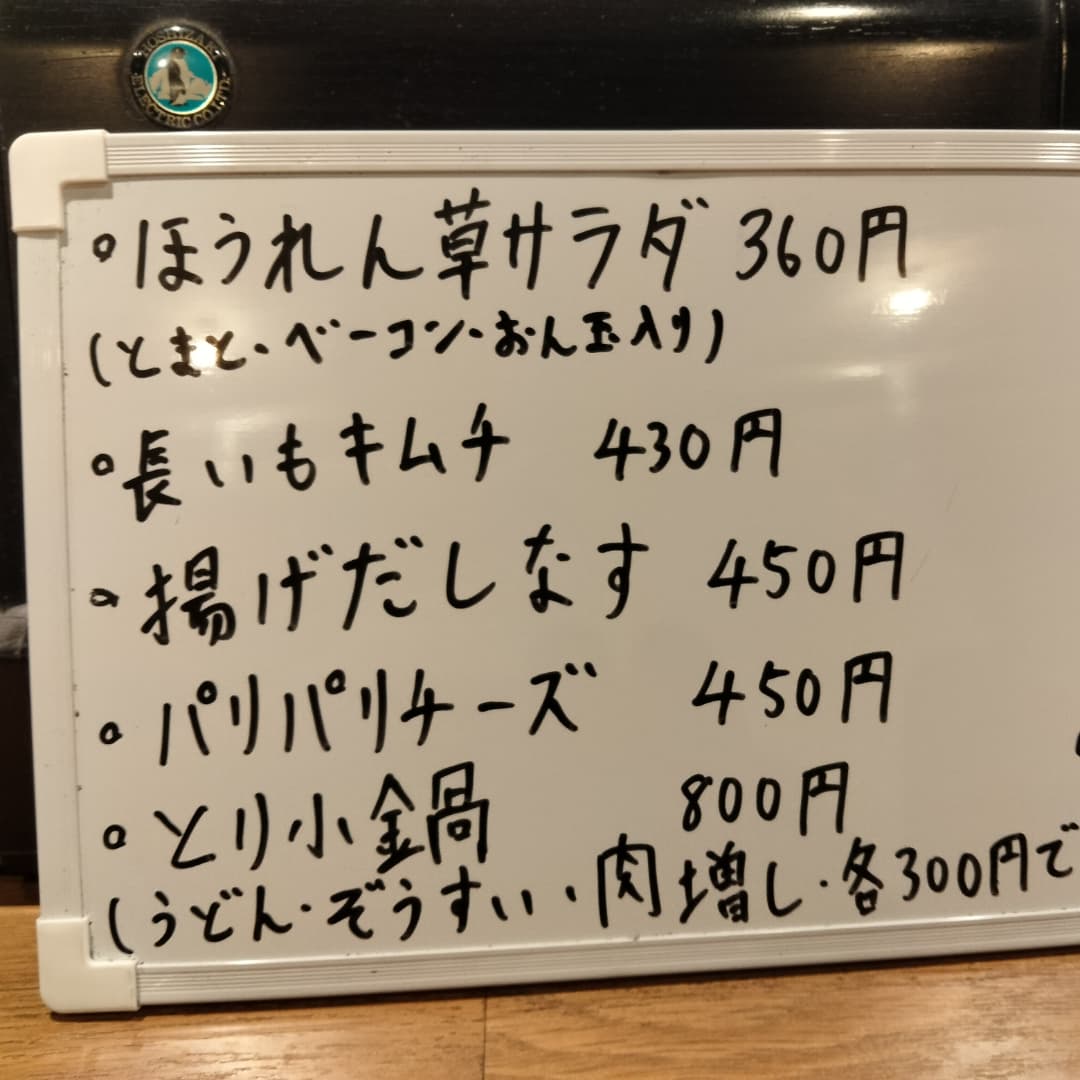 HOSHIZAKI
ELECTRIC CO.,LTD.
ほうれん草サラダ 360円
(とまと・ベーコン・おん玉入り)
長いもキムチ 430円
揚げだしなす 450円
パリパリチーズ 450円
とり小鍋 800円
(うどん・ぞうすい・肉増し・各300円で